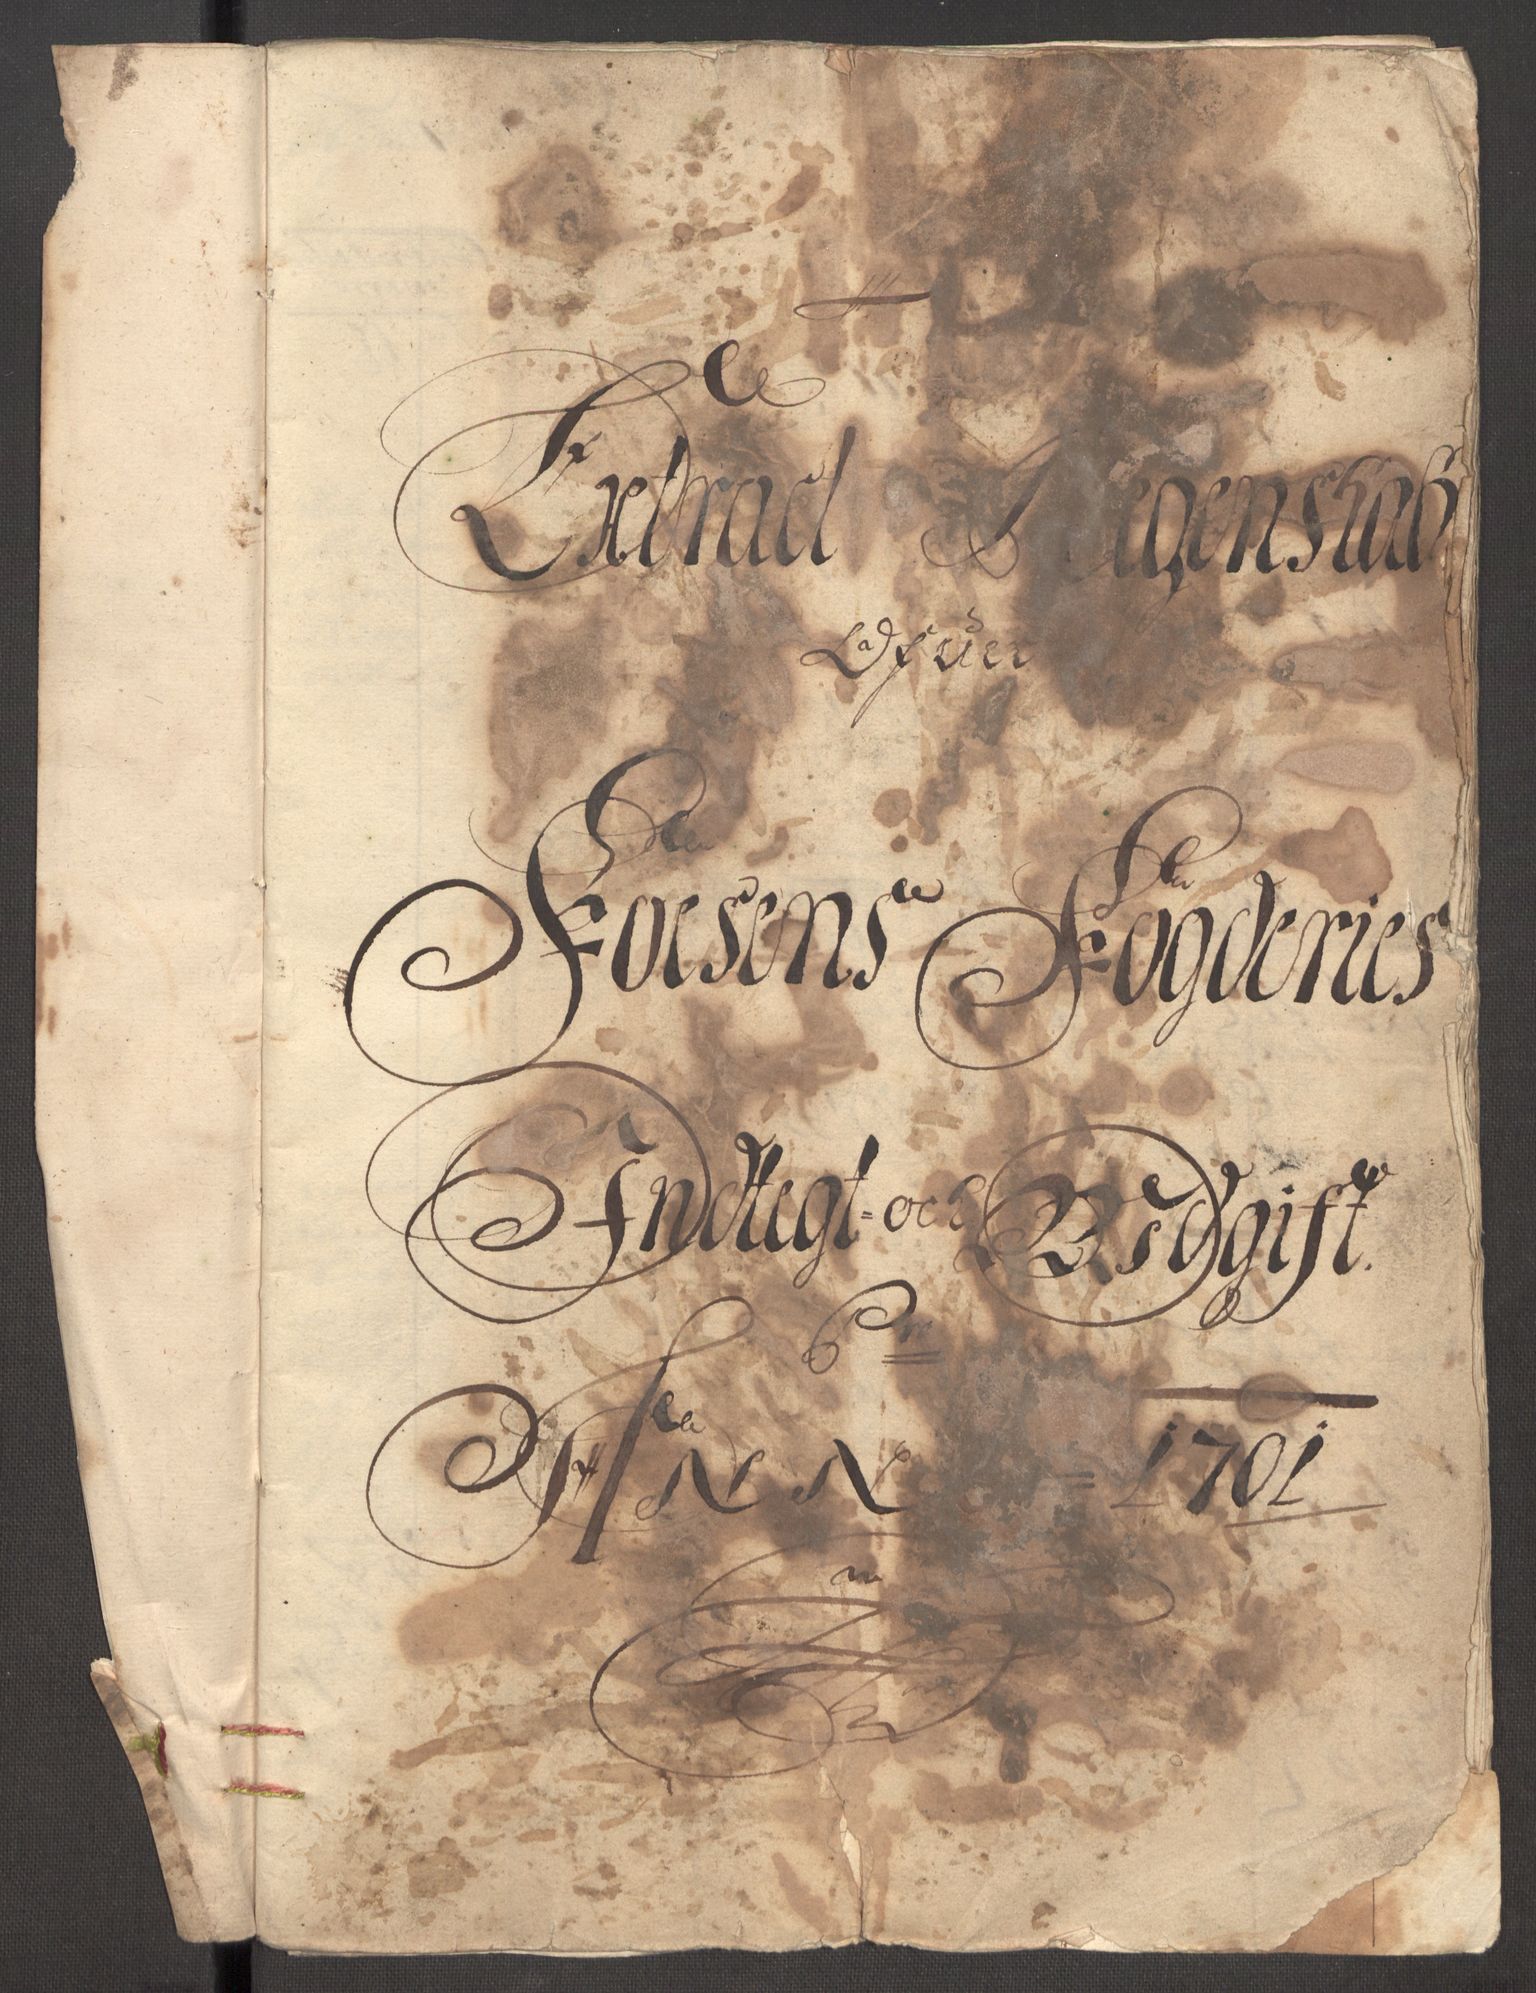 Extract Regenskab
Ofuer
Foesens Fogderies
Indtegt = och Vdgift.
Pro
ANNO = 1701